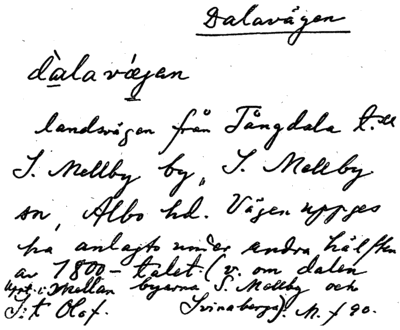 Dalavägen
dàlavǽgen
landsvägen från Tångdala till
S. Mellby by, S. Mellby
sn, Albo hd. Vägen uppges
ha anlagts under andra hälften
av 1800-talet (v. om dalen
mellan byarna S. Mellby och
S:t Olof. Svinaberga). M. f 90.